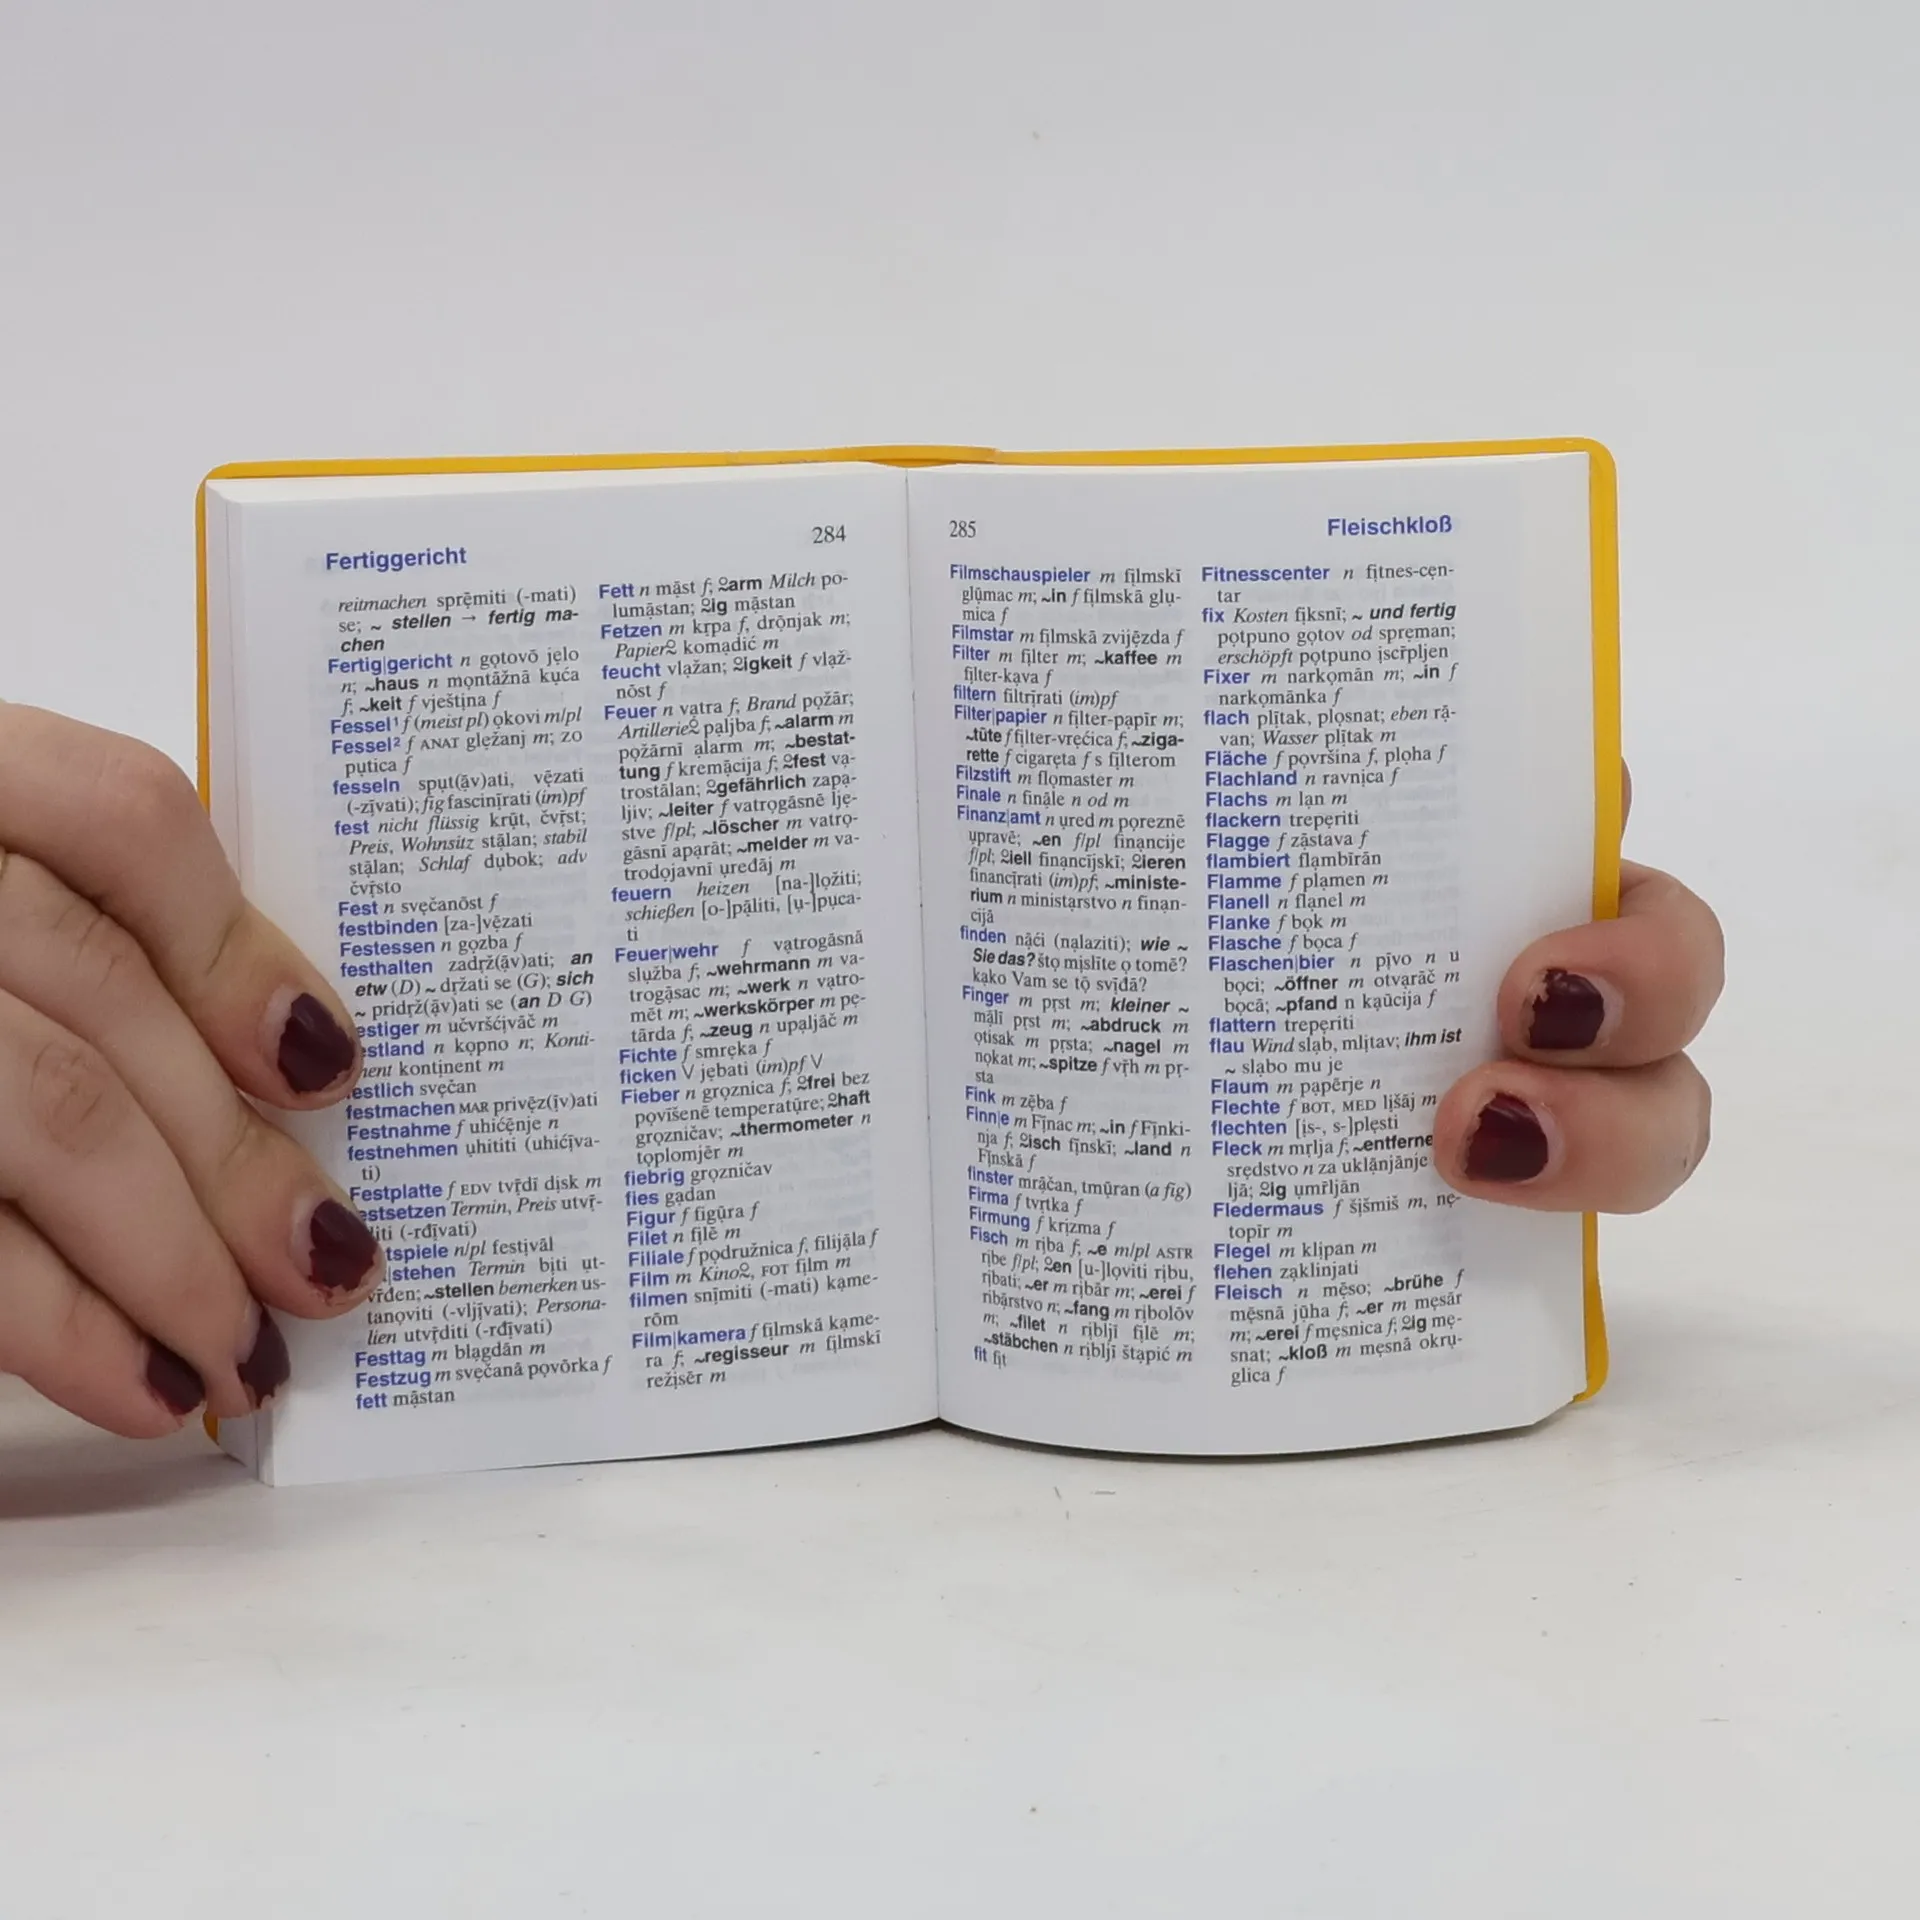 Fertiggericht
284
reitmachen sprémiti (-mati)
se; ~ stellen → fertig ma-
chen
Fertig|gericht n gọtovō jẹlo
n; ~haus n mọntāžnā kụća
f; ~keit f vještịna f
Fessel¹ f (meist pl) ọkovi m/pl
Fessel² f ANAT glẹžanj m; zo
pụtica f
fesseln spụt(ạ̄v)ati, vẹ̄zati
(-zị̄vati); fig fascinị̄rati (im)pf
fest nicht flüssig krụ̄t, čvṝst;
Preis, Wohnsitz stạ̄lan; stabil
stạ̄lan; Schlaf dụbok; adv
čvṝsto
Fest n svẹčanōst f
festbinden [za-]vẹ̄zati
Festessen n gọzba f
festhalten zadṛž(ạ̄v)ati; an
etw (D) ~ dṛžati se (G); sich
~ pridṛž(ạ̄v)ati se (an D G)
estiger m učvršćịvāč m
estland n kọpno n; Konti-
nent kontịnent m
estlich svẹčan
festmachen MAR privẹz(ị̄v)ati
Festnahme f uhićẹ̄nje n
festnehmen ụhititi (uhićị̄va-
ti)
Festplatte f EDV tvṝdī dịsk m
estsetzen Termin, Preis utvṝ-
diti (-rđị̄vati)
tspiele n/pl festịvāl
|stehen Termin bịti ụt-
vr̄đen; ~stellen bemerken us-
tanọviti (-vljị̄vati); Persona-
lien utvṝditi (-rđị̄vati)
Festtag m blạgdān m
Festzug m svẹčanā pọvōrka f
fett mạ̄stan
Fett n mạ̄st f; ≈arm Milch po-
lumạ̄stan; ≈ig mạ̄stan
Fetzen m kṛpa f, drọ̄njak m;
Papier≈ komạdić m
feucht vlạžan; ≈igkeit f vlạž-
nōst f
Feuer n vạtra f; Brand pọžār;
Artillerie≈ pạljba f; ~alarm m
pọžārnī ạlarm m; ~bestat-
tung f kremạ̄cija f; ≈fest vạ-
trostālan; ≈gefährlich zapạ-
ljiv; ~leiter f vatrọgāsnē ljẹ-
stve f/pl; ~löscher m vatrọ-
gāsnī apạrāt; ~melder m va-
trodojavnī ụređāj m
feuern heizen [na-]lọžiti;
schießen [o-]pạ̄liti, [ụ-]pụca-
ti
Feuer|wehr f vạtrogāsnā
slụžba f; ~wehrmann m va-
trogāsac m; ~werk n vạtro-
mēt m; ~werkskörper m pẹ-
tārda f; ~zeug n upạljāč m
Fichte f smrẹka f
ficken V jẹbati (im)pf V
Fieber n grọznica f; ≈frei bez
pọvīšenē temperatụ̄re; ≈haft
grọzničav; ~thermometer n
tọplomjēr m
fiebrig grọzničav
fies gạdan
Figur f figụ̄ra f
Filet n fịlē m
Filiale f pọdružnica f, filijạ̄la f
Film m Kino≈, FOT fịlm m
filmen snị̄miti (-mati) kạme-
rōm
Film|kamera f fịlmskā kạme-
ra f; ~regisseur m fịlmskī
režịsēr m
285
Fleischkloß
Filmschauspieler m fịlmskī
glụ̄mac m; ~in f fịlmskā glụ-
mica f
Filmstar m fịlmskā zvijẹ̄zda f
Filter m fịlter m; ~kaffee m
fịlter-kạva f
filtern filtrị̄rati (im)pf
Filter|papier n fịlter-pạpīr m;
~tüte f fịlter-vrẹćica f; ~ziga-
rette f cigarẹta f s fịlterom
Filzstift m flọmaster m
Finale n finạ̄le n od m
Finanz|amt n ụred m pọreznē
ụpravē; ~en f/pl financije
f/pl; ≈iell finạncījskī; ≈ieren
financị̄rati (im)pf; ~ministe-
rium n ministạrstvo n finạn-
cijā
finden nạ̄ći (nạlaziti); wie ~
Sie das? štọ mịslīte ọ tomē?
kạko Vam se tọ̄ svīđā?
Finger m pṛst m; kleiner ~
mạ̄lī pṛst m; ~abdruck m
ọtisak m pṛsta; ~nagel m
nọkat m; ~spitze f vṝh m pṛ-
sta
Fink m zẹ̄ba f
Finn|e m Fị̄nac m; ~in f Fị̄nki-
nja f; ≈isch fị̄nskī; ~land n
Fị̄nskā f
finster mrạ̄čan, tmụ̄ran (a fig)
Firma f tvṛtka f
Firmung f krịzma f
Fisch m rịba f; ~e m/pl ASTR
rịbe f/pl; ≈en [u-]lọviti rịbu,
rịbati; ~er m rịbār m; ~erei f
ribārstvo n; ~fang m ribolōv
m; ~filet n rịbljī fịlē m;
~stäbchen n rịbljī štạpić m
fit fịt
Fitnesscenter n fịtnes-cẹn-
tar
fix Kosten fịksnī; ~ und fertig
pọtpuno gọtov od sprẹman;
erschöpft pọtpuno ịscr̄pljen
Fixer m narkọmān m; ~in f
narkọmānka f
flach plị̄tak, plọsnat; eben rạ̄-
van; Wasser plị̄tak m
Fläche f pọvršina f, plọha f
Flachland n ravnịca f
Flachs m lạn m
flackern trepẹriti
Flagge f zạ̄stava f
flambiert flạmbīrān
Flamme f plạmen m
Flanell n flạnel m
Flanke f bọk m
Flasche f bọca f
Flaschen|bier n pị̄vo n u
bọci; ~öffner m otvạrāč m
bọcā; ~pfand n kạūcija f
flattern trepẹriti
flau Wind slạb, mlịtav; ihm ist
~ slạbo mu je
Flaum m pạpērje n
Flechte f BOT, MED lịšāj m
flechten [ịs-, s-]plẹsti
Fleck m mṛlja f; ~entferne
srẹdstvo n za uklạ̄njānje
ljā; ≈ig ụmr̄ljān
Fledermaus f šịšmiš m, nẹ-
topīr m
Flegel m klịpan m
flehen zạklinjati
Fleisch n mẹ̄so; ~brühe f
mẹsnā jụ̄ha f; ~er m mẹsār
m; ~erei f mẹsnica f; ≈ig mẹ-
snat; ~kloß m mẹsnā okrụ-
glica f